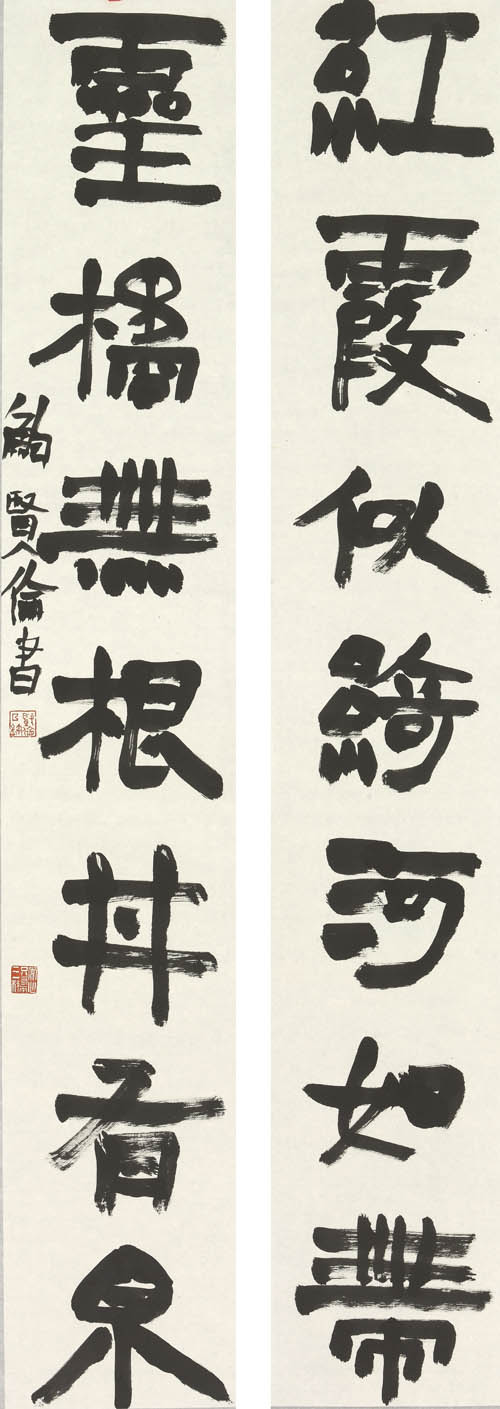 紅霞似綺河如帶
靈橘無根井有泉
鮑賢倫書